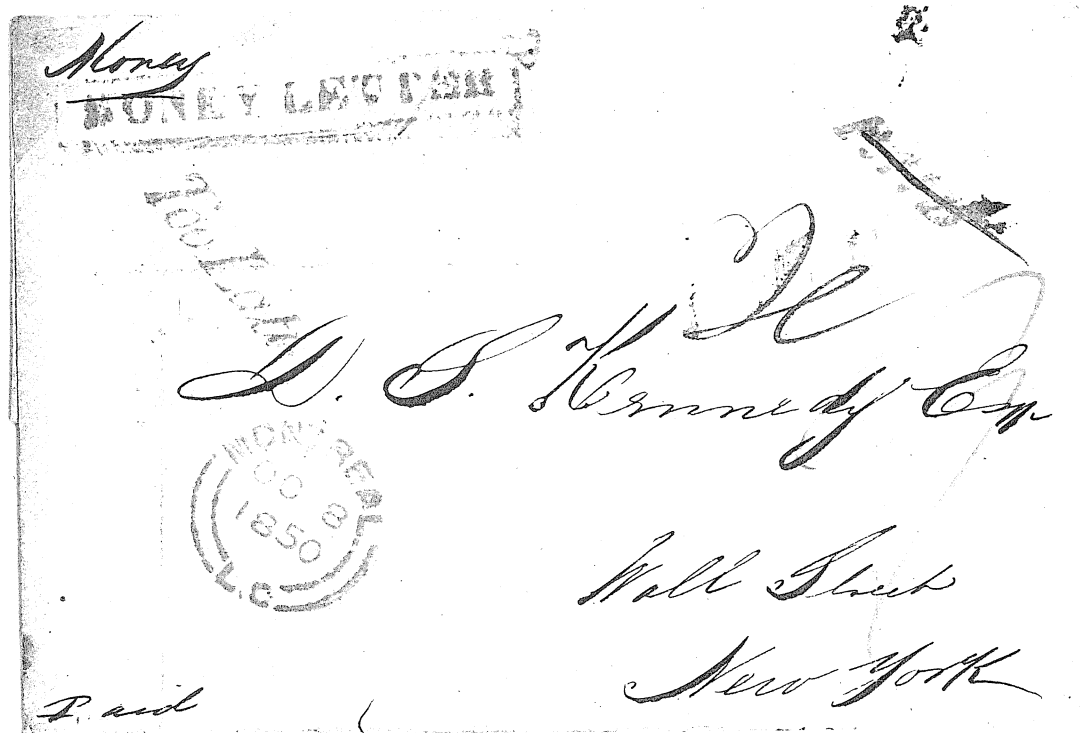 Money
MONEY LETTER
Too Late
D. S. Kennedy Esq
MONTREAL
OC 8
1850
L.C
Wall Street
New York
Paid